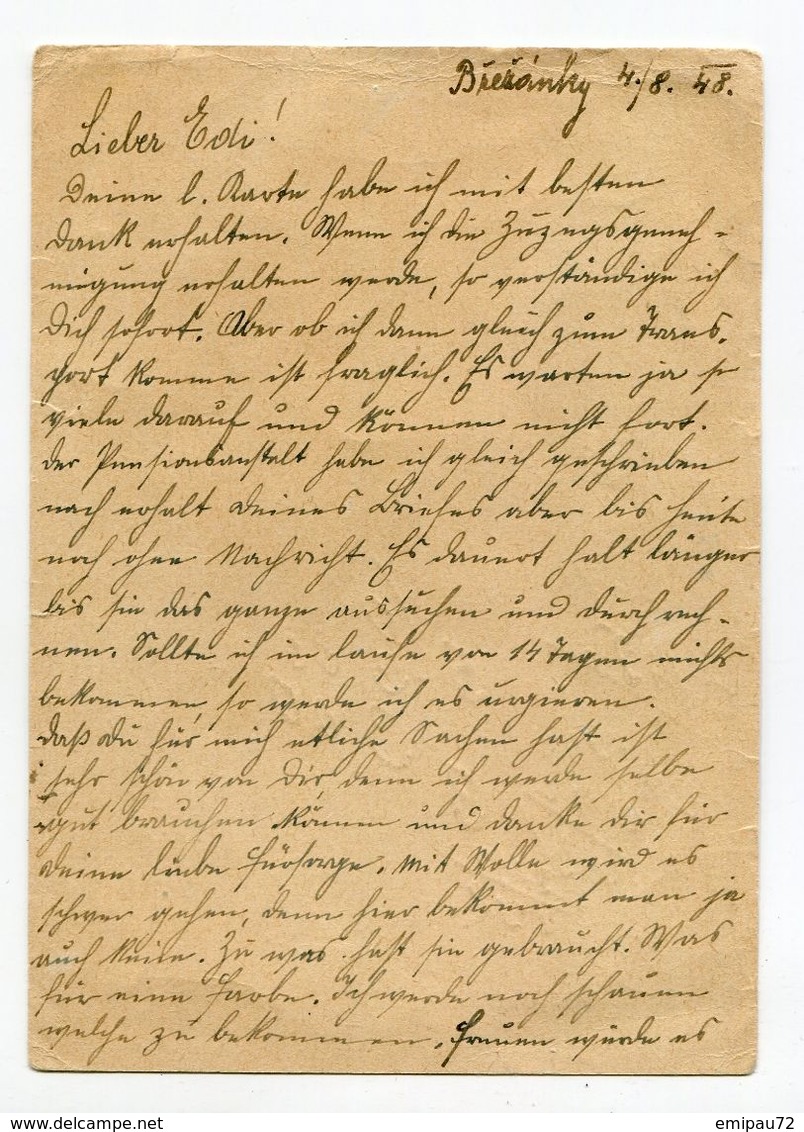 Břežánky 4./8. 48.
Lieber Edi!
Deine l. Karte habe ich mit besten
Dank erhalten. Wenn ich die Zuzugsgeneh-
migung erhalten werde, so verständige ich
Dich sofort. Aber ob ich dann gleich zum Trans-
port komme ist fraglich. Es warten ja so
viele darauf und können nicht fort.
Der Pensionsanstalt habe ich gleich geschrieben
nach erhalt Deines Briefes aber bis heute
noch ohne Nachricht. Es dauert halt länger
bis sie das ganze aussuchen und durchrech-
nen. Sollte ich im laufe von 14 Tagen nichts
bekommen, so werde ich es urgieren.
Daß Du für mich etliche Sachen hast ist
sehr schön von Dir, denn ich werde selbe
gut brauchen können und danke Dir für
Deine liebe Fürsorge. Mit Wolle wird es
schwer gehen, denn hier bekommt man ja
auch keine. Zu was hast sie gebraucht. Was
für eine Farbe. Ich werde noch schauen
welche zu bekommen. Freuen würde es
emipau72